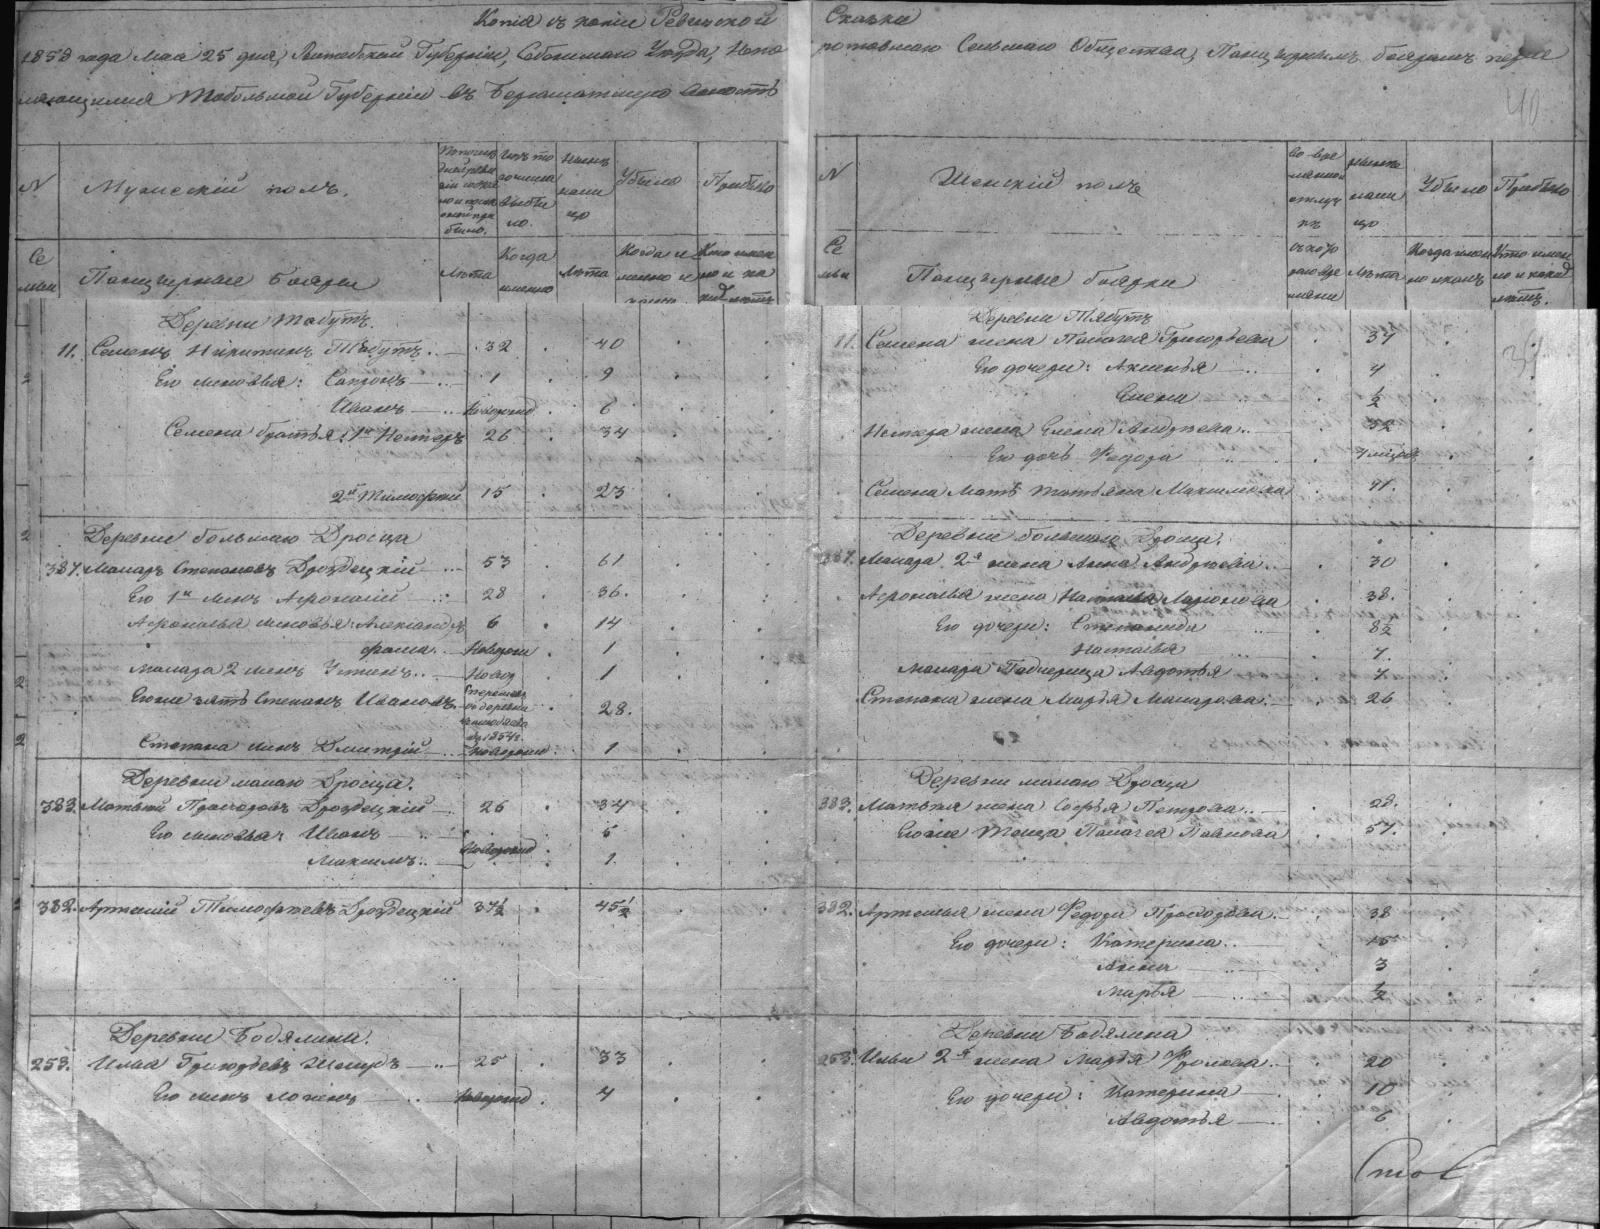 Копія съ копіи Ревизской Сказки
1858 года Мая 25 дня, Витебской Губерніи, Себежскаго Уѣзда, Непо
ротовскаго Сельскаго Общества, Панцырнымъ боярамъ пересе
ляющимся Тобольской Губерніи въ Бергаматскую волость
40
N
Мужескій полъ.
Изъ то
числа
выбы
ло.
Нынѣ
нали
цо
Убыло
Прибыло
Се
мьи
Панцырные Бояри
Лѣта
Когда
именно
Лѣта
Когда и
менно и
Деревни Тябутъ.
11. Семенъ Никитинъ Тябутъ 32 40
Его сыновья: Сапронъ 1 9
Иванъ Новорожд 6
Семена братья: 1й Нестеръ 26 34
2й Тимофей 15 23
Деревни большаго Дросца
387. Макаръ Степановъ Дроздецкій 53 61
Его 1й сынъ Афронасій 28 36.
Афронасья сыновья: Александръ 6 14
Фома Новорож 1
Макара 2 сынъ Устинъ Новор 1
Его же зять Степанъ Ивановъ 28.
въ деревни
1854 г.
Степана сынъ Дмитрій Новорожд 1
Деревни малаго Дросца.
383. Матвей Прохоровъ Дроздецкій 26 34
Его сыновья: Иванъ 5
Максимъ Новорожд 1
382. Артемій Тимофеевъ Дроздецкій 37½ 45½
Деревни Бодялина.
253. Илья Григорьевъ Шкиръ 25 33
Его сынъ Логинъ Новорожд 4
N
Женскій полъ
Во вре
менной
отлуч
кѣ
нали
цо
Убыло
Прибыло
Се
мьи
Панцырные боярки
Лѣта
Когда имен
но
Кто имен
но и
лѣтъ.
Деревни Тябутъ
11. Семена жена Палагея Григорьева 37
Его дочери: Аксинья 4
Елена ½
Нестера жена Елена Андреева 32
Его дочь Федора
Семена Мать Татьяна Максимова 71.
Деревни большаго Дросца.
387. Макара 2я жена Анна Андреева 30
Афронасья жена Наталья Ларионова 38.
Его дочери: Степанида 8½
Наталья 7.
Макара Падчерица Авдотья 7
Степана жена Марья Макарова 26
Деревни малаго Дросца
383. Матвея жена Софья Петрова 28.
Его же Теща Палагея Павлова 57.
382. Артемья жена Федора Прохорова 38
Его дочери: Катерина 15
Анна 3
Марья ½
Деревни Бодялина
253. Ильи 2я жена Марья Фролова 20
Его дочери: Катерина 10
Авдотья 6